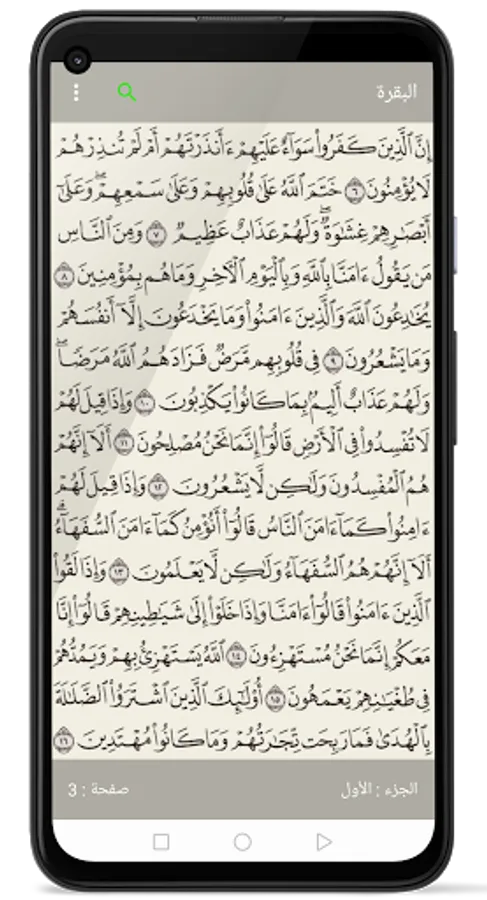 البقرة
إِنَّ ٱلَّذِينَ كَفَرُوا۟ سَوَآءٌ عَلَيْهِمْ ءَأَنذَرْتَهُمْ أَمْ لَمْ تُنذِرْهُمْ
لَا يُؤْمِنُونَ ٦ خَتَمَ ٱللَّهُ عَلَىٰ قُلُوبِهِمْ وَعَلَىٰ سَمْعِهِمْ ۖ وَعَلَىٰٓ
أَبْصَـٰرِهِمْ غِشَـٰوَةٌ ۖ وَلَهُمْ عَذَابٌ عَظِيمٌ ٧ وَمِنَ ٱلنَّاسِ
مَن يَقُولُ ءَامَنَّا بِٱللَّهِ وَبِٱلْيَوْمِ ٱلْـَٔاخِرِ وَمَا هُم بِمُؤْمِنِينَ ٨
يُخَـٰدِعُونَ ٱللَّهَ وَٱلَّذِينَ ءَامَنُوا۟ وَمَا يَخْدَعُونَ إِلَّآ أَنفُسَهُمْ
وَمَا يَشْعُرُونَ ٩ فِى قُلُوبِهِم مَّرَضٌ فَزَادَهُمُ ٱللَّهُ مَرَضًا ۖ
وَلَهُمْ عَذَابٌ أَلِيمٌۢ بِمَا كَانُوا۟ يَكْذِبُونَ ١٠ وَإِذَا قِيلَ لَهُمْ
لَا تُفْسِدُوا۟ فِى ٱلْأَرْضِ قَالُوٓا۟ إِنَّمَا نَحْنُ مُصْلِحُونَ ١١ أَلَآ إِنَّهُمْ
هُمُ ٱلْمُفْسِدُونَ وَلَـٰكِن لَّا يَشْعُرُونَ ١٢ وَإِذَا قِيلَ لَهُمْ
ءَامِنُوا۟ كَمَآ ءَامَنَ ٱلنَّاسُ قَالُوٓا۟ أَنُؤْمِنُ كَمَآ ءَامَنَ ٱلسُّفَهَآءُ ۗ
أَلَآ إِنَّهُمْ هُمُ ٱلسُّفَهَآءُ وَلَـٰكِن لَّا يَعْلَمُونَ ١٣ وَإِذَا لَقُوا۟
ٱلَّذِينَ ءَامَنُوا۟ قَالُوٓا۟ ءَامَنَّا وَإِذَا خَلَوْا۟ إِلَىٰ شَيَـٰطِينِهِمْ قَالُوٓا۟ إِنَّا
مَعَكُمْ إِنَّمَا نَحْنُ مُسْتَهْزِءُونَ ١٤ ٱللَّهُ يَسْتَهْزِئُ بِهِمْ وَيَمُدُّهُمْ
فِى طُغْيَـٰنِهِمْ يَعْمَهُونَ ١٥ أُو۟لَـٰٓئِكَ ٱلَّذِينَ ٱشْتَرَوُا۟ ٱلضَّلَـٰلَةَ
بِٱلْهُدَىٰ فَمَا رَبِحَت تِّجَـٰرَتُهُمْ وَمَا كَانُوا۟ مُهْتَدِينَ ١٦
الجزء : الأول
صفحة : 3